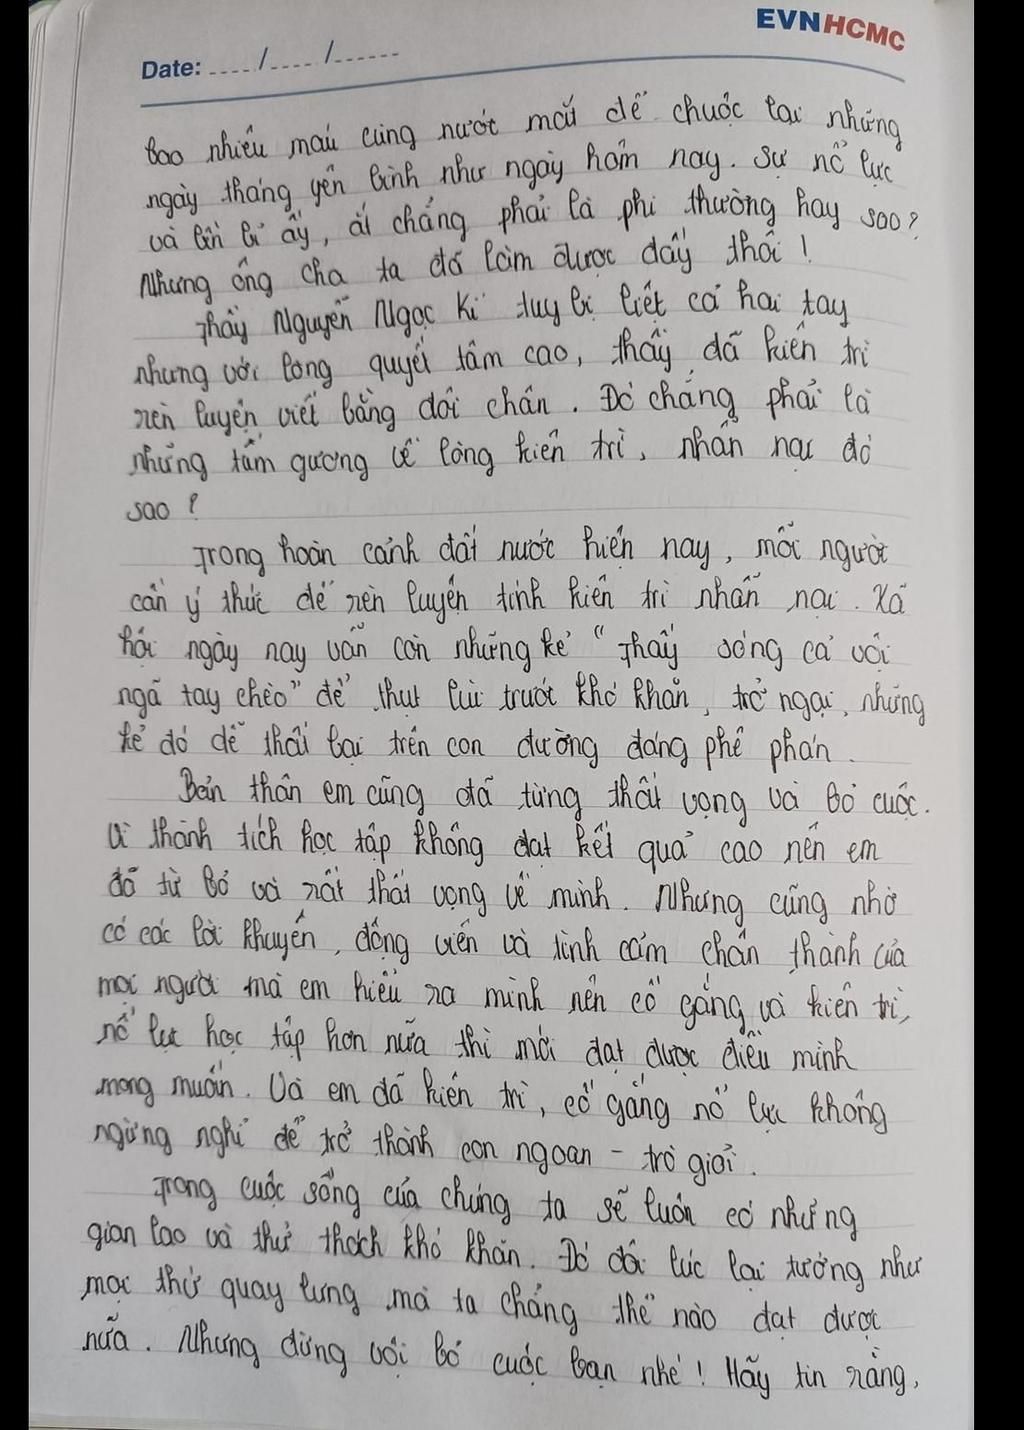 EVNHCMC
Date: ..../..../......
bao nhiêu máu cùng nước mắt để chuộc lại những
ngày tháng yên bình như ngày hôm nay. Sự nổ lực
và bền bỉ ấy, ắt chẳng phải là phi thường hay sao?
Nhưng ông cha ta đã làm được đấy thôi!
Thầy Nguyễn Ngọc Kí tuy bị liệt cả hai tay
nhưng với lòng quyết tâm cao, thầy đã kiên trì
rèn luyện viết bằng đôi chân. Đó chẳng phải là
những tấm gương về lòng kiên trì, nhẫn nại đó
sao?
Trong hoàn cảnh đất nước hiện nay, mỗi người
cần ý thức để rèn luyện tính kiên trì nhẫn nại. Xã
hội ngày nay vẫn còn những kẻ "Thấy sóng cả vội
ngã tay chèo" để thụt lùi trước khó khăn, trở ngại, những
kẻ đó dễ thất bại trên con đường đáng phê phán.
Bản thân em cũng đã từng thất vọng và bỏ cuộc.
Vì thành tích học tập không đạt kết quả cao nên em
đã từ bỏ và rất thất vọng về mình. Nhưng cũng nhờ
có các lời khuyên, động viên và tình cảm chân thành của
mọi người mà em hiểu ra mình nên cố gắng và kiên trì,
nổ lực học tập hơn nữa thì mới đạt được điều mình
mong muốn. Và em đã kiên trì, cố gắng nổ lực không
ngừng nghỉ để trở thành con ngoan - trò giỏi.
Trong cuộc sống của chúng ta sẽ luôn có những
gian lao và thử thách khó khăn. Đó đôi lúc lại tưởng như
mọi thứ quay lưng mà ta chẳng thể nào đạt được
nữa. Nhưng đừng vội bỏ cuộc bạn nhé! Hãy tin rằng,